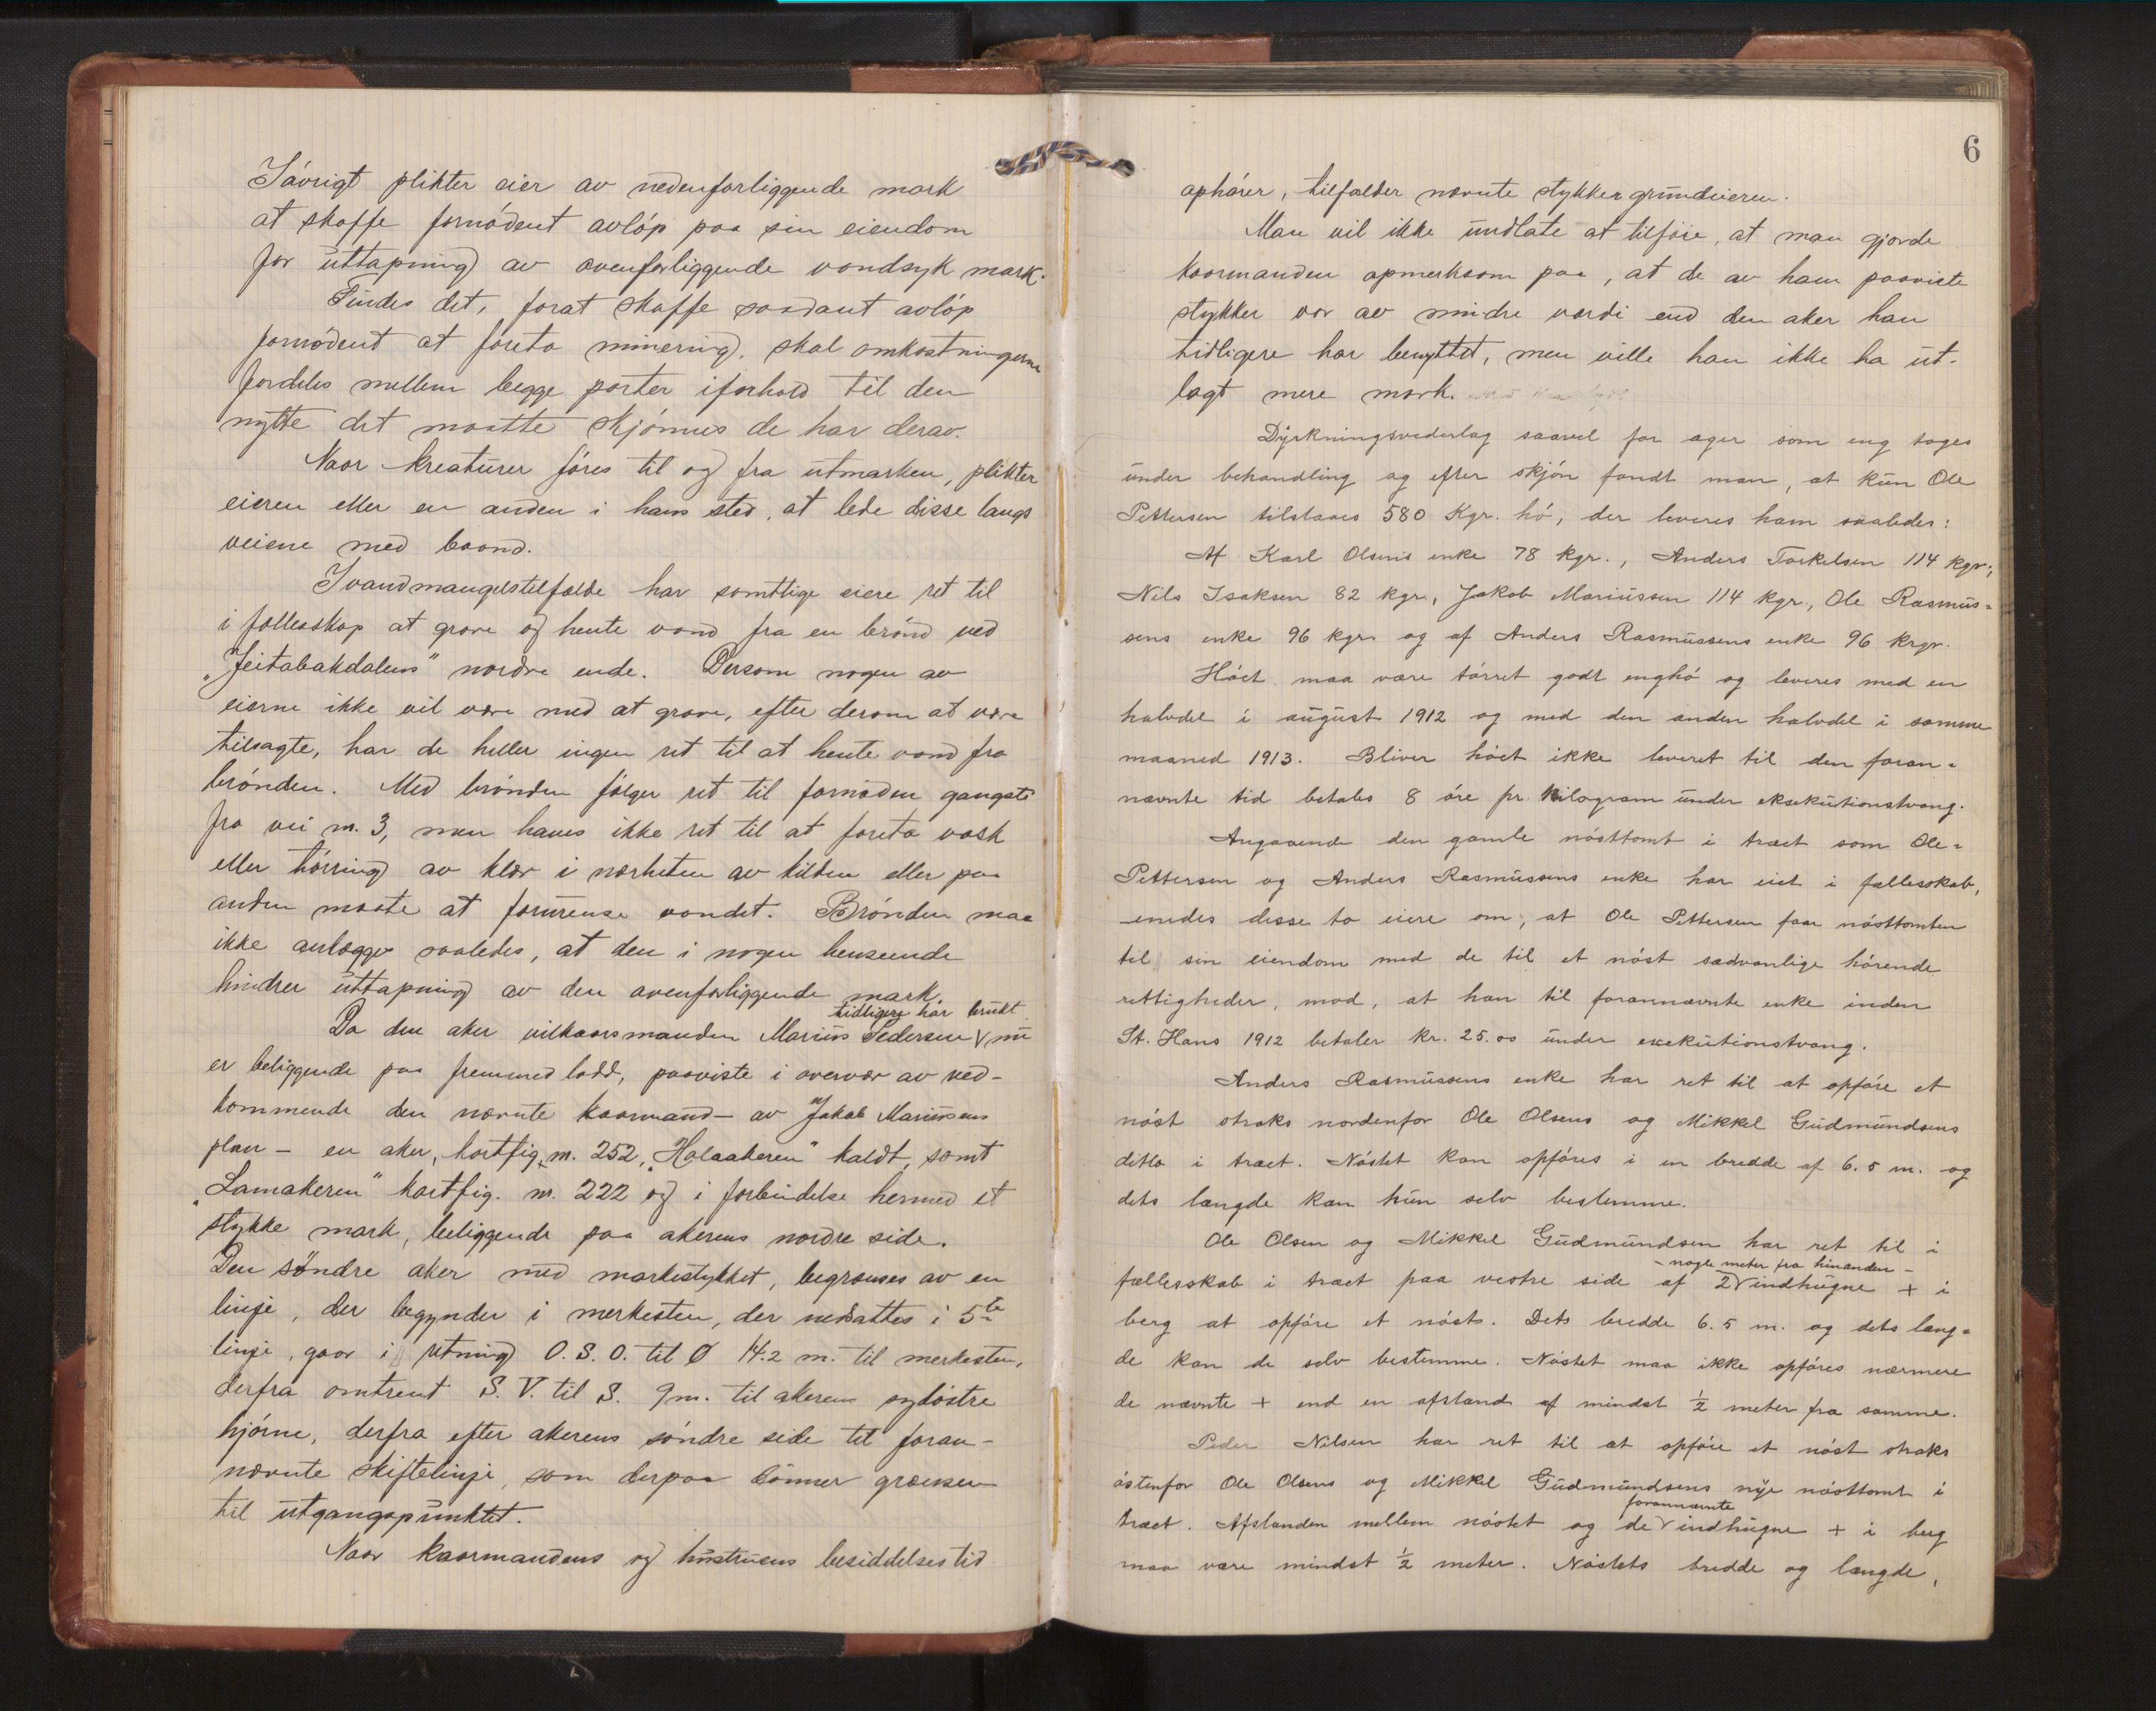 Iøvrigt plikter eier av nedenforliggende mark
at skaffe fornødent avløp paa sin eiendom
for uttapning av ovenforliggende vandsyk mark.
Findes det, forat skaffe saadant avløp
fornødent at foreta minering, skal omkostningerne
fordeles mellem begge parter iforhold til den
nytte det maatte skjønnes de har derav.
Naar kreaturer føres til og fra utmarken, plikter
eieren eller en anden i hans sted, at lede disse langs
veiene med baand.
I vandmangelstilfælde har samtlige eiere ret til
i fællesskap at grave og hente vand fra en brønd ved
"Jeitabakdalens" nordre ende. Dersom nogen av
eierne ikke vil være med at grave, efter derom at være
tilsagte, har de heller ingen ret til at hente vand fra
brønden. Med brønden følger ret til fornøden gangsti
fra vei nr. 3, men haves ikke ret til at foreta vask
eller tørring av klær i nærheten av kilden eller paa
anden maate at forurense vandet. Brønden maa
ikke anlægges saaledes, at den i nogen henseende
hindrer uttapning av den ovenforliggende mark.
tidligere har brukt
Da den aker vilkaarsmanden Marius Pedersen √ nu
er beliggende paa fremmed lodd, paaviste i overvær av ved-
kommende den nævnte kaarmand - av Jakob Mariussens
plan - en aker, kartfig. nr. 252, "Holaakeren" kaldt, samt
"Lamakeren" kartfig. nr. 222 og i forbindelse hermed et
stykke mark, beliggende paa akerens nordre side.
Den søndre aker med markestykket, begrænses av en
linje, der begynder i merkesten, der nedsattes i 5te
linje, gaar i retning O. S. O. til Ø 14.2 m. til merkesten,
derfra omtrent S. V. til S. 9 m. til akerens sydøstre
hjørne, derfra efter akerens søndre side til foran-
nævnte skiftelinje, som derpaa danner grænsen
til utgangspunktet.
Naar kaarmandens og hustruens besiddelsestid
6
ophører, tilfalder nævnte stykker grundeieren.
Man vil ikke undlate at tilføie, at man gjorde
kaarmanden opmerksom paa, at de av ham paaviste
stykker var av mindre værdi end den aker han
tidligere har benyttet, men ville han ikke ha ut-
lagt mere mark.
Dyrkningsvederlag saavel for ager som eng toges
under behandling og efter skjøn fandt man, at kun Ole
Pettersen tilstaaes 580 Kgr. hø, der leveres ham saaledes:
Af Karl Olsens enke 78 kgr., Anders Torkelsen 114 kgr.,
Nils Isaksen 82 kgr., Jakob Mariussen 114 kgr., Ole Rasmus=
sens enke 96 kgr. og af Anders Rasmussens enke 96 krgr.
Høet maa være tørret godt enghø og leveres med en
halvdel i august 1912 og med den anden halvdel i samme
maaned 1913. Bliver høet ikke leveret til den foran=
nævnte tid betales 8 øre pr. kilogram under eksekutionstvang.
Angaaende den gamle nøsttomt i træet som Ole=
Pettersen og Anders Rasmussens enke har eiet i fællesskab,
enedes disse to eiere om, at Ole Pettersen faar nøsttomten
til sin eiendom med de til et nøst sædvanlige hørende
rettigheder, mod, at han til forannævnte enke inden
St. Hans 1912 betaler kr. 25.00 under exekutionstvang.
Anders Rasmussens enke har ret til at opføre et
nøst straks nordenfor Ole Olsens og Mikkel Gudmundsens
ditto i træet. Nøstet kan opføres i en bredde af 6.5 m. og
dets længde kan hun selv bestemme.
Ole Olsen og Mikkel Gudmundsen har ret til i
- nogle meter fra hinanden -
fællesskab i træet paa vestre side af 2 √ indhugne + i
berg at opføre et nøst. Dets bredde 6.5 m. og dets læng=
de kan de selv bestemme. Nøstet maa ikke opføres nærmere
de nævnte + end en afstand af mindst ½ meter fra samme.
Peder Nilsen har ret til at opføre et nøst straks
østenfor Ole Olsens og Mikkel Gudmundsens nye nøsttomt i
forannævnte
træet. Afstanden mellem nøstet og de √ indhugne + i berg
maa være mindst ½ meter. Nøstets bredde og længde,